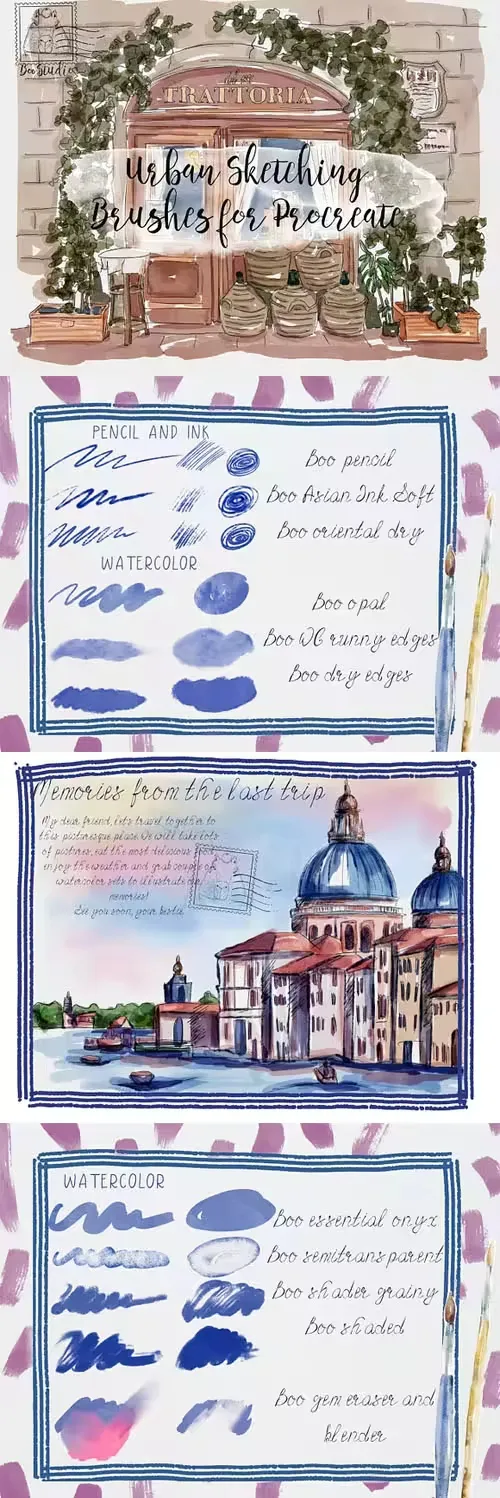 Boo Studio
TRATTORIA
Urban Sketching
Brushes for Procreate
PENCIL AND INK
Boo pencil
Boo Asian Ink Soft
Boo oriental dry
WATERCOLOR
Boo opal
Boo WC runny edges
Boo dry edges
Memories from the last trip
My dear friend, let's travel together to
this picturesque place. We will take lots
of pictures, eat the most delicious food
enjoy the weather and grab couple of
watercolor sets to illustrate our
memories!
See you soon, your bestie
WATERCOLOR
Boo essential onyx
Boo semitransparent
Boo shader grainy
Boo shaded
Boo gem eraser and
blender